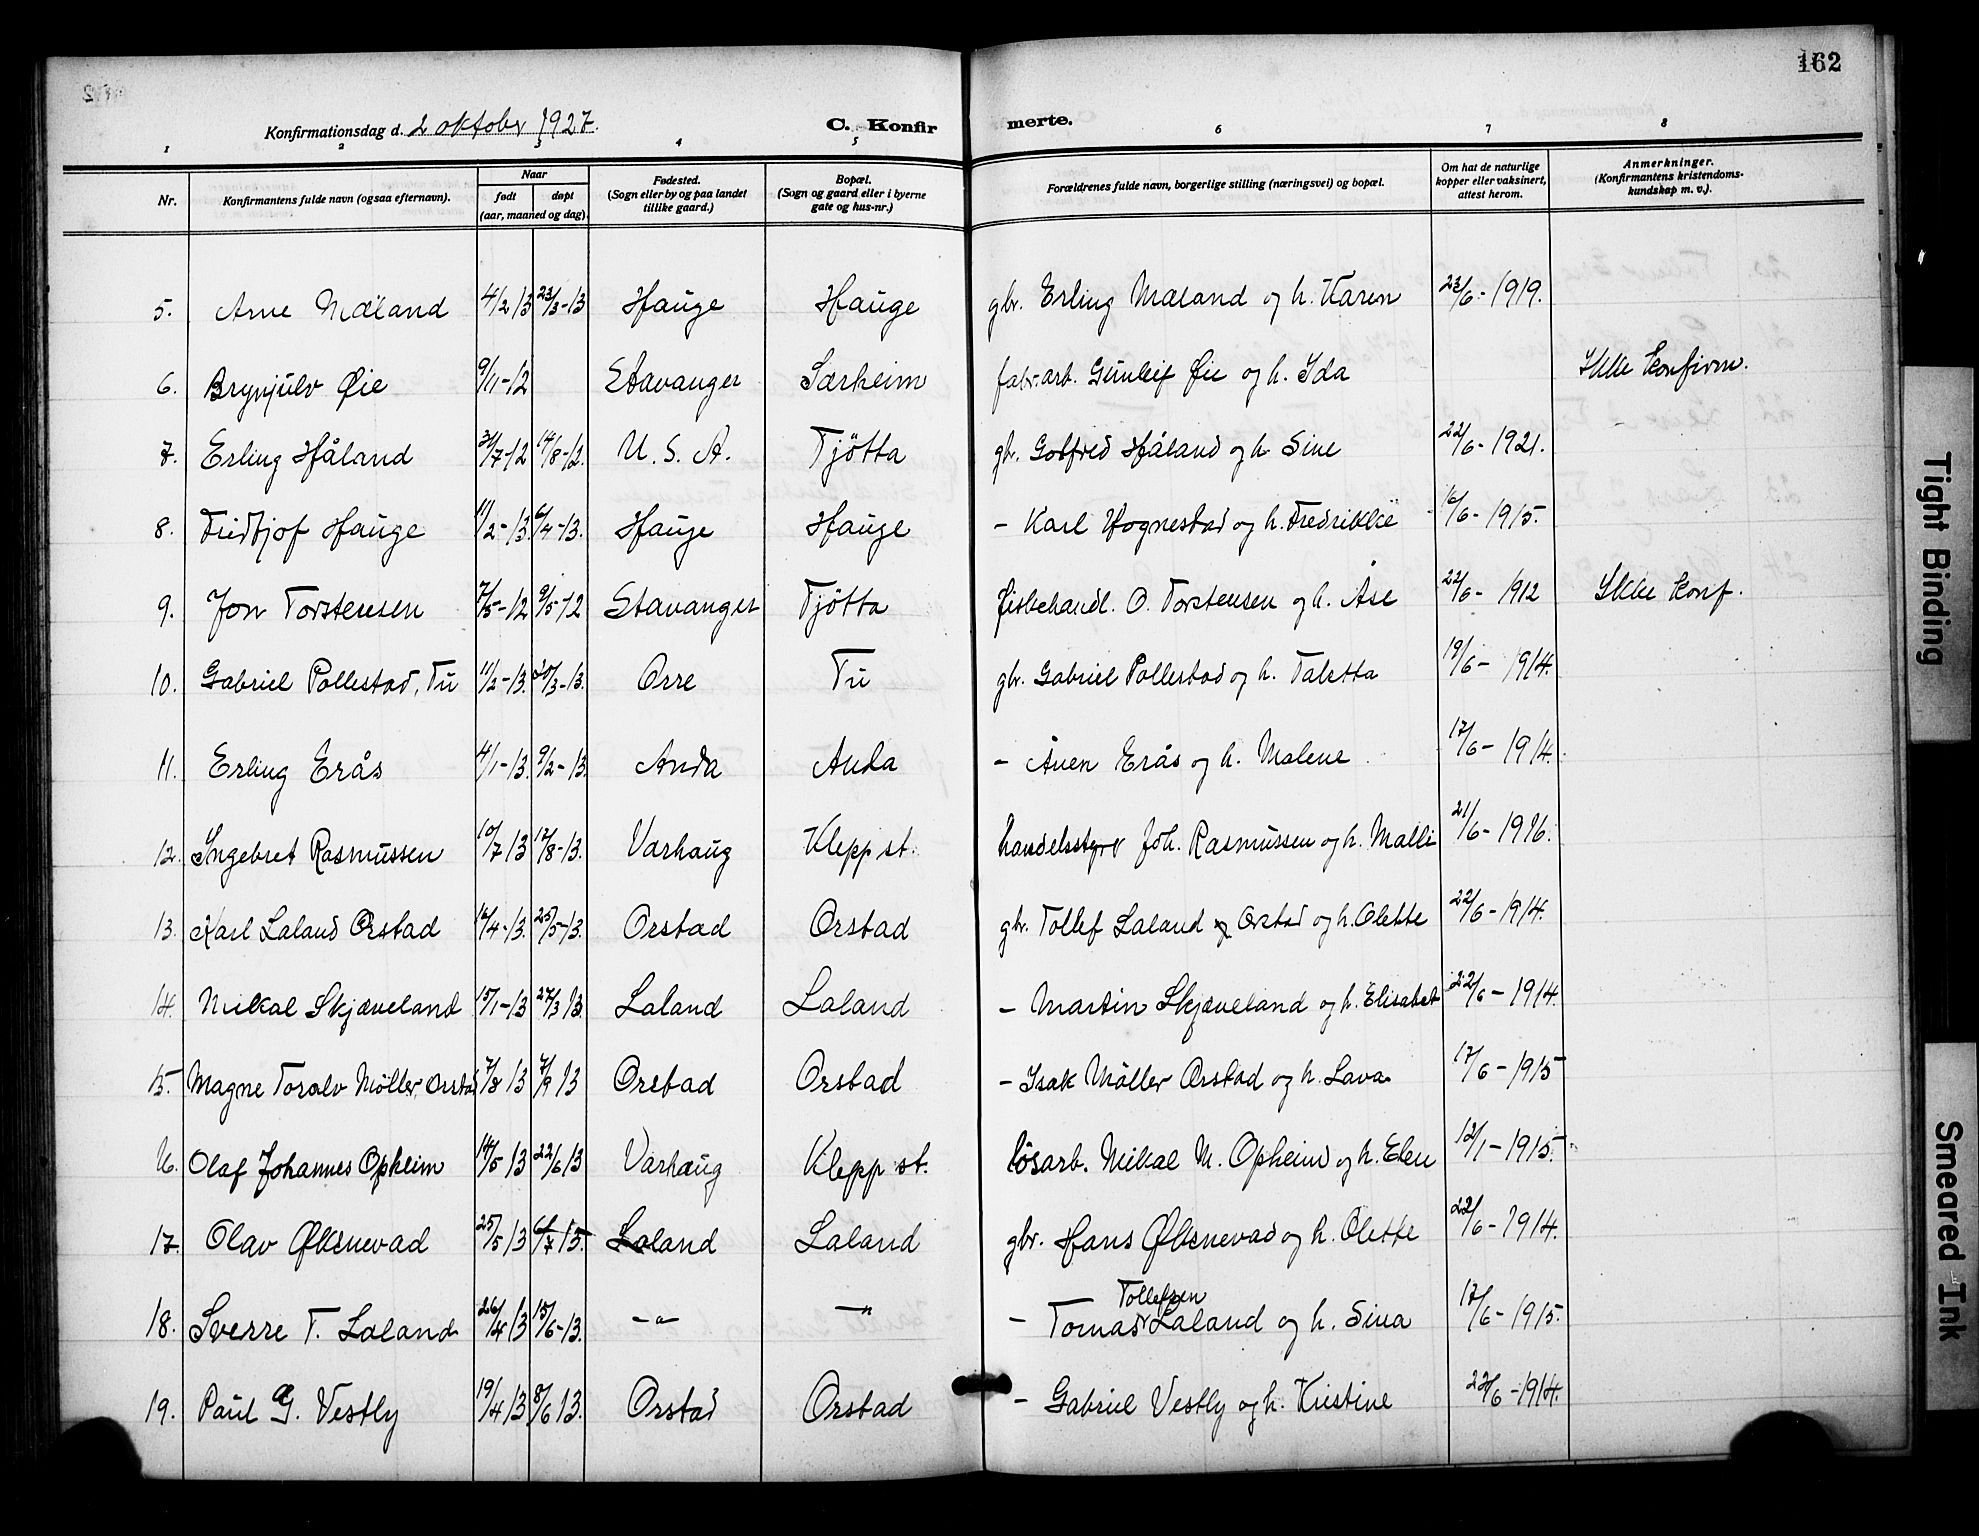 162
Konfirmationsdag d. 2 oktober 1927.
C. Konfirmerte.
1 2 3 4 5 6 7 8
Nr. Konfirmantens fulde navn (ogsaa efternavn). Naar født døpt (aar, maaned og dag). Fødested. (Sogn eller by og paa landet tillike gaard.) Bopæl. (Sogn og gaard eller i byerne gate og hus-nr.) Forældrenes fulde navn, borgerlige stilling (næringsvei) og bopæl. Om hat de naturlige kopper eller vaksinert, attest herom. Anmerkninger. (Konfirmantens kristendomskundskap m. v.).
5. Arne Mæland 4/2 13 23/3-13 Hauge Hauge gbr. Erling Mæland og h. Karen 23/6-1919.
6. Brynjulv Øie 9/11-12 Stavanger Særheim fabr.arb. Gunleif Øie og h. Ida Ikke konfirm.
7. Erling Håland 31/7-12 14/8-12. U. S. A. Tjötta gbr. Gotfred Håland og h. Sine 22/6-1921.
8. Fridtjof Hauge 11/2-13. 6/4-13. Hauge Hauge - Karl Hognestad og h. Fredrikke 16/6-1915.
9. Jon Torstensen 7/5-12 9/5-12 Stavanger Tjötta fiskehandl. O. Torstensen og h. Åse 22/6-1912 Ikke konf.
10. Gabriel Pollestad, Tu 11/2-13. 30/3-13. Orre Tu gbr. Gabriel Pollestad og h. Taletta 19/6-1914.
11. Erling Erås 4/1-13. 9/2-13. Anda Anda - Auen Erås og h. Malene 17/6-1914.
12. Ingebret Rasmussen 10/7 13 17/8-13. Varhaug Klepp st. handelsstyrer Joh. Rasmussen og h. Malli 21/6-1916.
13. Karl Laland Orstad 16/4-13. 25/5-13. Orstad Orstad gbr. Tollef Laland Orstad og h. Olette 22/6-1914.
14. Mikal Skjæveland 15/1-13 27/3 13. Laland Laland - Martin Skjæveland og h. Elisabet 22/6-1914.
15. Magne Toralv Möller, Orstad 7/8 13 7/9 13 Orstad Orstad - Isak Möller Orstad og h. Lava 17/6-1915
16. Olaf Johannes Opheim 14/5 13 22/6 13 Varhaug Klepp st. lösarb. Mikal M. Opheim og h. Elen 12/1-1915.
17. Olav Øksnevad 25/5 13 6/7 13. Laland Laland gbr. Hans Øksnevad og h. Olette 22/6-1914.
18. Sverre T. Laland 26/4 13 15/6-13. -"- -"- - Tomas Tollefsen Laland og h. Sina 17/6-1915.
19. Paul G. Vestly 19/4 13 8/6 13. Orstad Orstad - Gabriel Vestly og h. Kristine 22/6-1914.
Tight Binding
Smeared Ink